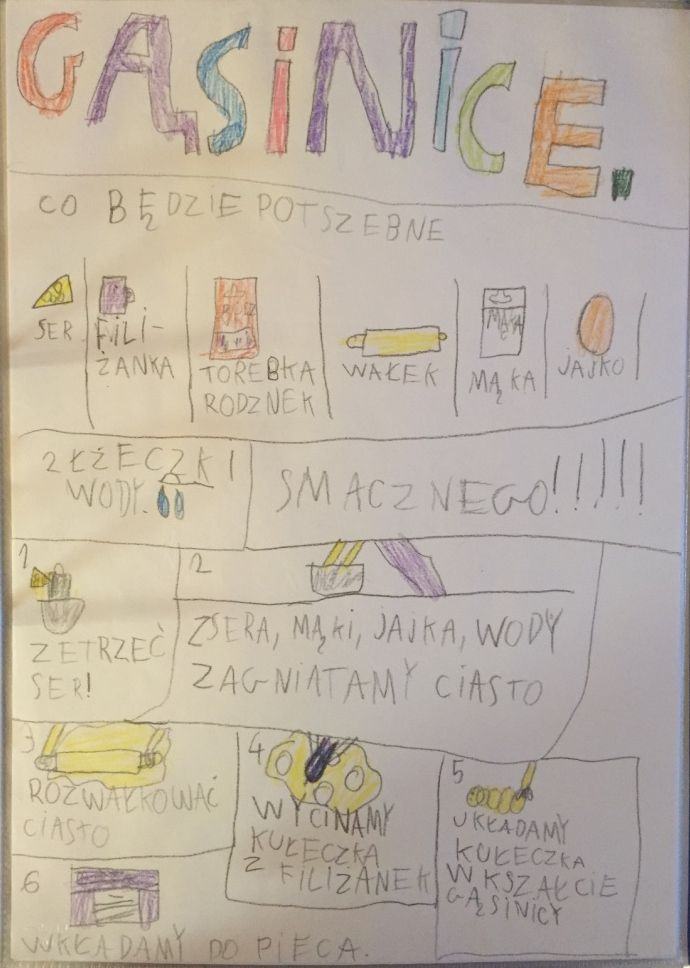 GĄSINICE.
CO BĘDZIE POTSZEBNE
SER
FILI-
ŻANKA
TOREBKA
RODZNEK
WAŁEK
MĄKA
MĄKA
JAJKO
2 ŁŻECZKI
WODY.
SMACZNEGO!!!!!
1
ZETRZEĆ
SER!
2
ZSERA, MĄKI, JAJKA, WODY
ZAGNIATAMY CIASTO
3
ROZWAŁKOWAĆ
CIASTO
4
WYCINAMY
KUŁECZKA
Z FILIŻANEK
5
UKŁADAMY
KUŁECZKA
W KSZAŁCIE
GĄSINICY
6
WKŁADAMY DO PIECA.